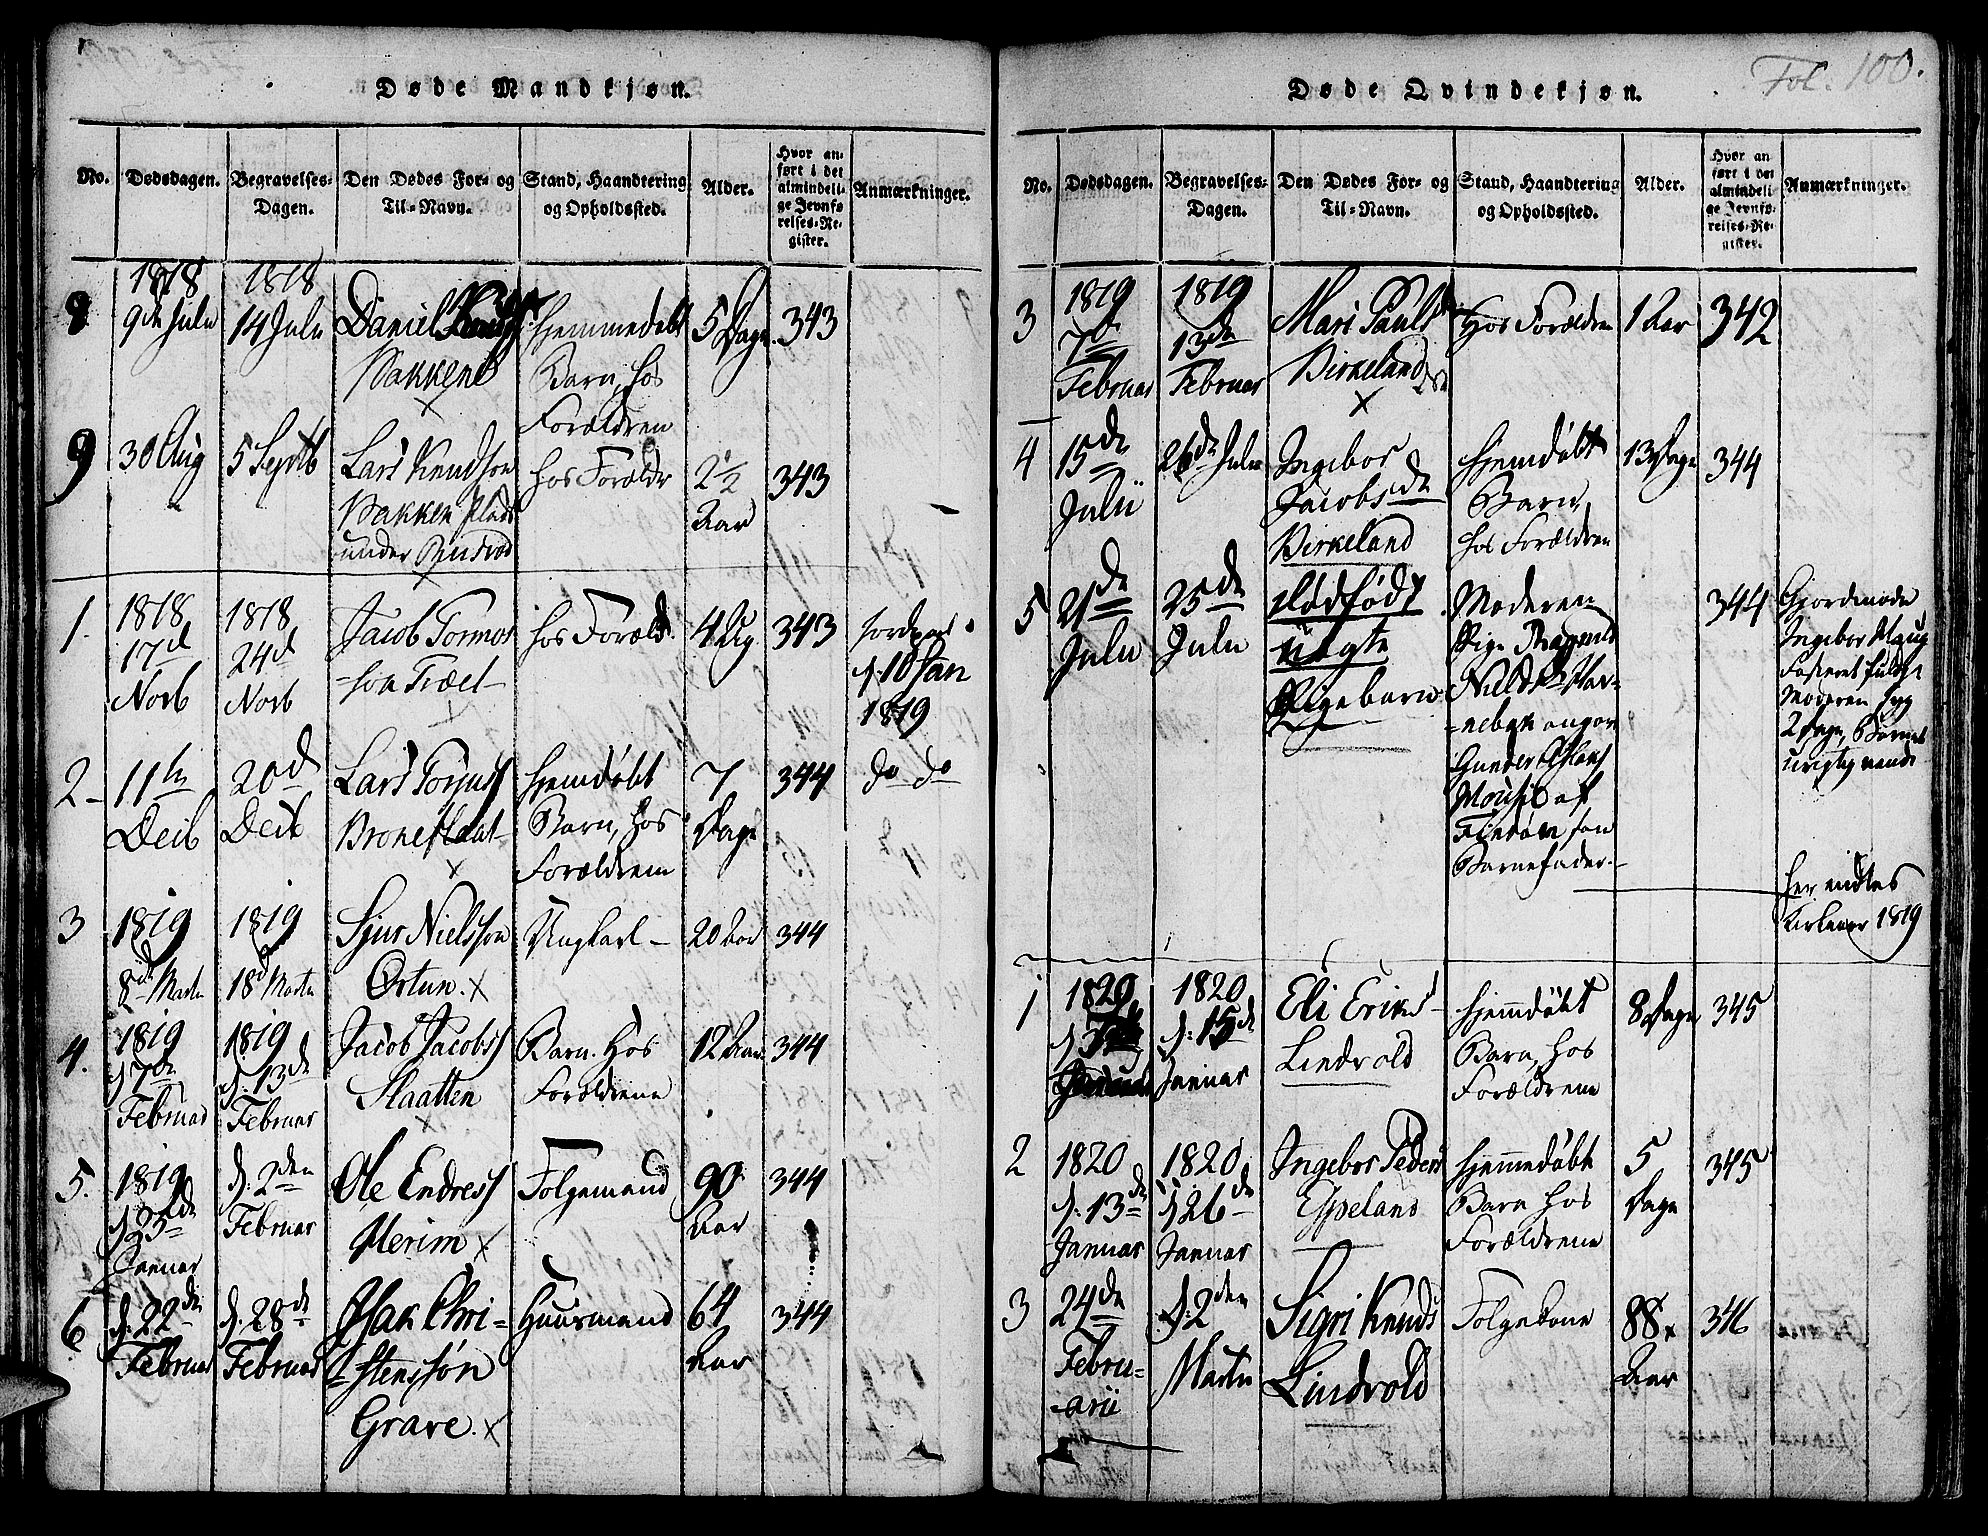 Døde Mandkjøn.
No.
Dødsdagen.
Begravelses-
Dagen.
Den Dødes For- og
Til-Navn.
Stand, Haandtering
og Opholdssted.
Alder.
Hvor an-
ført i det
almindeli-
ge Jevnfø-
relses-Re-
gister.
Anmærkninger.
8
1818
9de Julii
1818
14 Julii
Daniel
Bakken
Hjemmedøbt
Barn, hos
Forældren
5 Dage
343
9
30 Aug
5 Septb
Lars Knudson
Bakken Plads
under
hos Forældr
2 1/2
Aar
343
1.
1818
17d
Novb
1818
24d
Novb
Jacob Tormos
son Træet
hos Foræld.
4 Ug
343
Jordpaa
d. 10 Jan
1819
2
11te
Decb
20d
Decb
Lars
Hjemdøbt
Barn, hos
Forældrene
7
Dage
344
do do
3
1819
8de Martii
1819
18d Martii
Sjur Nielsson
Ørtun
Ungkarl
20 Aar
344
4.
1819
d 7de
Februar
1819
d. 13de
Februar
Jacob Jacobs
Slaatten
Barn. Hos
Forældrene
12 Aar
344
5.
1819
d 25de
Januar
d. 2den
Februar
Ole Endres
Merim
Folgemand
90
Aar
344
6
d. 22den
Februar
d. 28de
Februar
Chri-
stenssøn
Grave
Huusmand
64
Aar
344
Fol. 100.
Døde Qvindekjøn.
No.
Dødsdagen.
Begravelses-
Dagen.
Den Dødes For- og
Til-Navn.
Stand, Haandtering
og Opholdssted.
Alder.
Hvor an
ført i det
almindeli-
ge Jevnfø-
relses-Re-
gister.
Anmærkninger.
3
1819
7de
Februar
1819
13de
Februar
Mari Pauls
Birkeland
Hos Forældren
1 Aar
342
4
15de
Julii
26de Julii
Ingebor
Jacobsd
Birkeland
Hjemdøbt
Barn,
hos Forældren
13 Dage
344
5
21de
Julii
25de
Julii
Dødfødt
uægte
Pigebarn
Moderen
Pige
angav
Gunder
af
Barnefader
344
Gjordmode
Ingebor
Moderen syg
2 Dage, Barnet
urigtig vendt
Her endtes
Kirkeaar 1819
1
1820
1820
d. 15de
Januar
Eli Eriks
Lindvold
Hjemdøbt
Barn, hos
Forældrene
8 Dage
345
2
1820
d. 13de
Januar
1820
d 26de
Januar
Ingebor Peders
Espeland
Hjemmedøbt
Barn hos
Forældrene
5
Dage
345
3
24de
Febru-
arii
d. 2den
Martii
Sigri Knuds
Lindvold
Folgekone
88
Aar
346